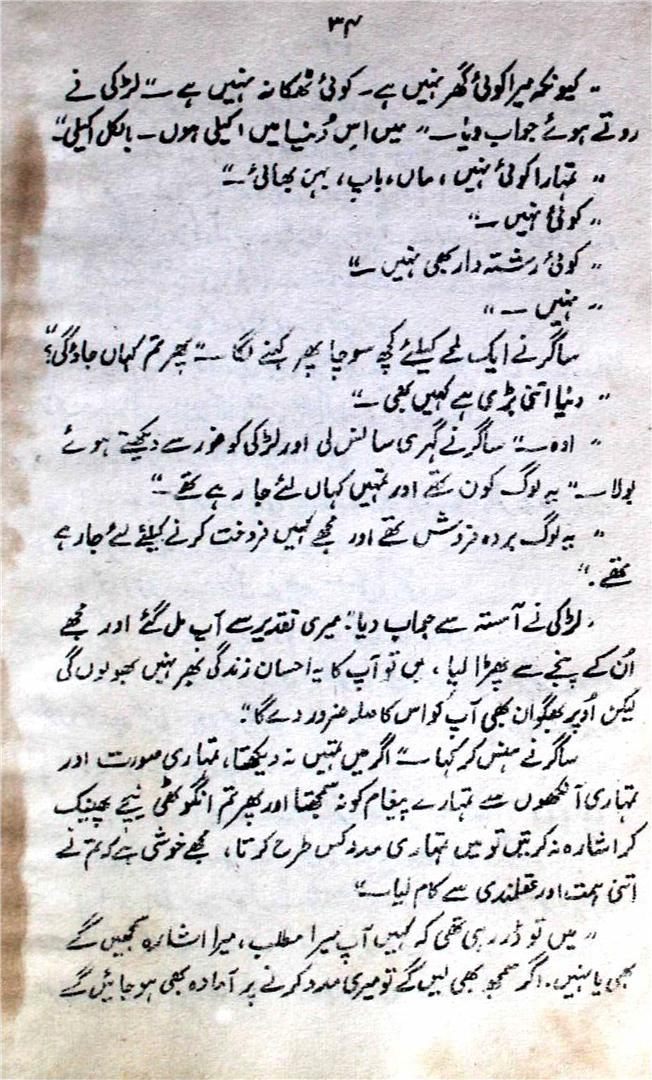 ۳۴
” کیونکہ میرا کوئی گھر نہیں ہے۔ کوئی ٹھکانہ نہیں ہے ۔“ لڑکی نے
روتے ہوئے جواب دیا۔ ” میں اس دُنیا میں اکیلی ہوں۔ بالکل اکیلی۔“
” تمہارا کوئی نہیں، ماں، باپ، بہن بھائی ۔“
” کوئی نہیں ۔“
” کوئی رشتہ دار بھی نہیں ۔“
” نہیں ۔“
ساگر نے ایک لمحے کیلئے کچھ سوچا پھر کہنے لگا ۔” پھر تم کہاں جاؤ گی؟“
” دنیا اتنی بڑی ہے کہیں بھی ۔“
” اوہ ۔“ ساگر نے گہری سانس لی اور لڑکی کو غور سے دیکھتے ہوئے
بولا ۔” یہ لوگ کون تھے اور تمہیں کہاں لئے جا رہے تھے ۔“
” یہ لوگ بردہ فروش تھے اور مجھے کہیں فروخت کرنے کیلئے لے جا رہے
تھے ۔“
لڑکی نے آہستہ سے جواب دیا۔” میری تقدیر سے آپ مل گئے اور مجھے
اُن کے پنجے سے چھڑا لیا ، میں تو آپ کا یہ احسان زندگی بھر نہیں بھولوں گی
لیکن اُوپر بھگوان بھی آپ کو اس کا صلہ ضرور دے گا۔“
ساگر نے ہنس کر کہا ۔” اگر میں تمہیں نہ دیکھتا، تمہاری صورت اور
تمہاری آنکھوں سے تمہارے پیغام کو نہ سمجھتا اور پھر تم انگوٹھی نیچے پھینک
کر اشارہ نہ کرتیں تو میں تمہاری مدد کس طرح کرتا، مجھے خوشی ہے کہ تم نے
اتنی ہمت اور عقلمندی سے کام لیا ۔“
” میں تو ڈر رہی تھی کہ کہیں آپ میرا مطلب، میرا اشارہ سمجھیں گے
بھی یا نہیں۔ اگر سمجھ بھی لیں گے تو میری مدد کرنے پر آمادہ بھی ہو جائیں گے